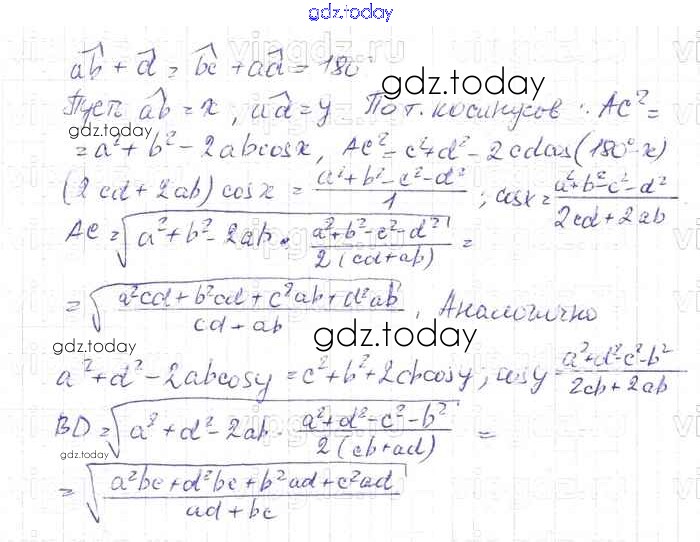 gdz.today
ab + d = bc + ad = 180°
gdz.today
Пусть ab = x, ad = y По т. косинусов : AC² =
gdz.today
= a² + b² - 2abcosx, AC² - c² + d² - 2cdcos(180° - x)
(2cd + 2ab) cosx = (a² + b² - c² - d²)/1 ; cosx = (a² + b² - c² - d²)/(2cd + 2ab)
AC = √(a² + b² - 2ab · (a² + b² - c² - d²)/(2(cd + ab))) =
= √((a²cd + b²cd + c²ab + d²ab)/(cd + ab)), Аналогично
gdz.today
gdz.today
a² + d² - 2abcosy = c² + b² + 2cbcosy ; cosy = (a² + d² - c² - b²)/(2cb + 2ab)
BD = √(a² + d² - 2ab · (a² + d² - c² - b²)/(2(cb + ad))) =
gdz.today
= √((a²bc + d²bc + b²ad + c²ad)/(ad + bc))